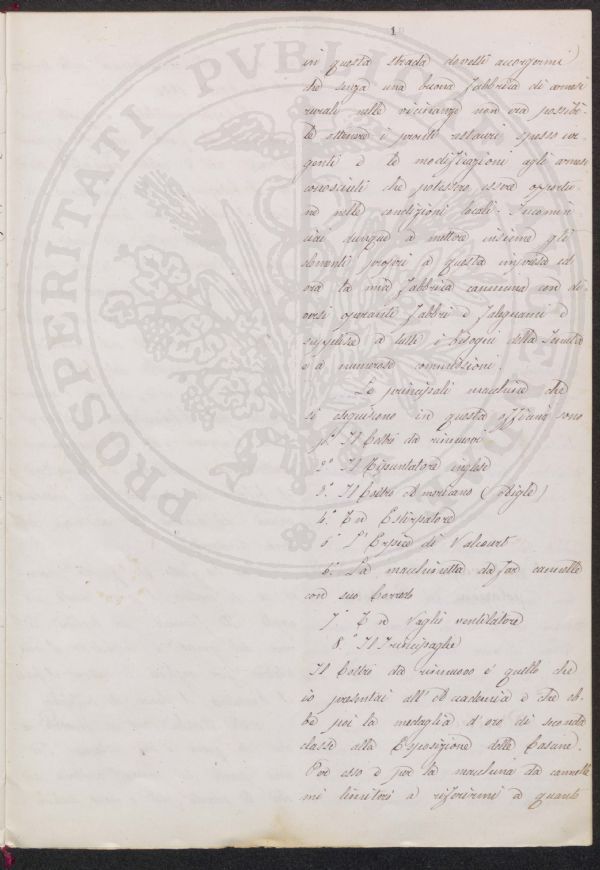 1
in questa strada dovetti accorgermi
che senza una buona fabbrica di arnesi
rurali nelle vicinanze non era possibi-
le ottenere i pronti restauri spesso ur-
genti e le modificazioni agli arnesi
conosciuti che potessero essere opportu-
ne nelle condizioni locali. Incomin
ciai dunque a mettere insieme gli
elementi propri a questa impresa ed
ora la mia fabbrica cammina con di-
versi operanti fabbri e falegnami e
supplisce a tutti i bisogni della Tenuta
e a numerose commissioni.
Le principali macchine che
si eseguiscono in questa officina sono
1º Il Coltro da rinnuovi
2º Il Ripuntatore inglese
3º Il Coltro Americano (
4º Un Estirpatore
5º L'Erpice di Valcourt
6º La macchinetta da far cannelle
con suo Carretto
7º Un Vaglio ventilatore
8º Il Trinciapaglia
Il Coltro da rinnuovo è quello che
io presentai all'Accademia e che eb-
be poi la medaglia d'oro di seconda
classe alla Esposizione delle Cascine.
Per esso e per la macchina da cannelle
mi limiterò a riferirmi a quanto
PROSPERITATI PUBLICAE